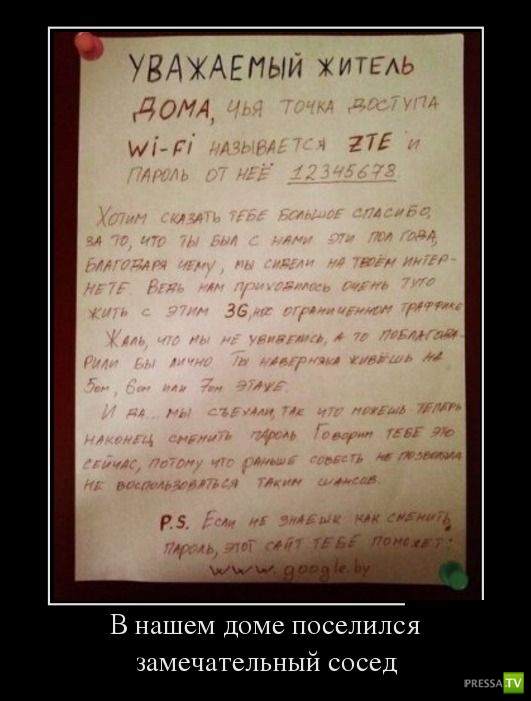 УВАЖАЕМЫЙ ЖИТЕЛЬ
ДОМА, ЧЬЯ ТОЧКА ДОСТУПА
Wi-Fi НАЗЫВАЕТСЯ ZTE И
ПАРОЛЬ ОТ НЕЁ 12345678.
ХОТИМ СКАЗАТЬ ТЕБЕ БОЛЬШОЕ СПАСИБО,
ЗА ТО, ЧТО ТЫ БЫЛ С НАМИ ЭТИ ПОЛ ГОДА,
БЛАГОДАРЯ ЧЕМУ, МЫ СИДЕЛИ НА ТВОЁМ ИНТЕР-
НЕТЕ. ВЕДЬ НАМ ПРИХОДИЛОСЬ ОЧЕНЬ ТУГО
ЖИТЬ С ЭТИМ 3G, ОГРАНИЧЕННОМ ТРАФФИКЕ
ЖАЛЬ, ЧТО МЫ НЕ УВИДЕЛИСЬ, А ТО ПОБЛАГОДА-
РИЛИ БЫ ЛИЧНО. ТЫ НАВЕРНЯКА ЖИВЁШЬ НА
5ом, 6ом ИЛИ 7ом ЭТАЖЕ.
И ДА... МЫ СЪЕХАЛИ, ТАК ЧТО МОЖЕШЬ ТЕПЕРЬ
НАКОНЕЦ СМЕНИТЬ ПАРОЛЬ. ГОВОРИМ ТЕБЕ ЭТО
СЕЙЧАС, ПОТОМУ ЧТО РАНЬШЕ СОВЕСТЬ НЕ ПОЗВОЛЯЛА
НЕ ВОСПОЛЬЗОВАТЬСЯ ТАКИМ ШАНСОМ.
P.S. ЕСЛИ НЕ ЗНАЕШЬ КАК СМЕНИТЬ
ПАРОЛЬ, ЭТОТ САЙТ ТЕБЕ ПОМОЖЕТ:
www.google.by
В нашем доме поселился
замечательный сосед
PRESSA TV